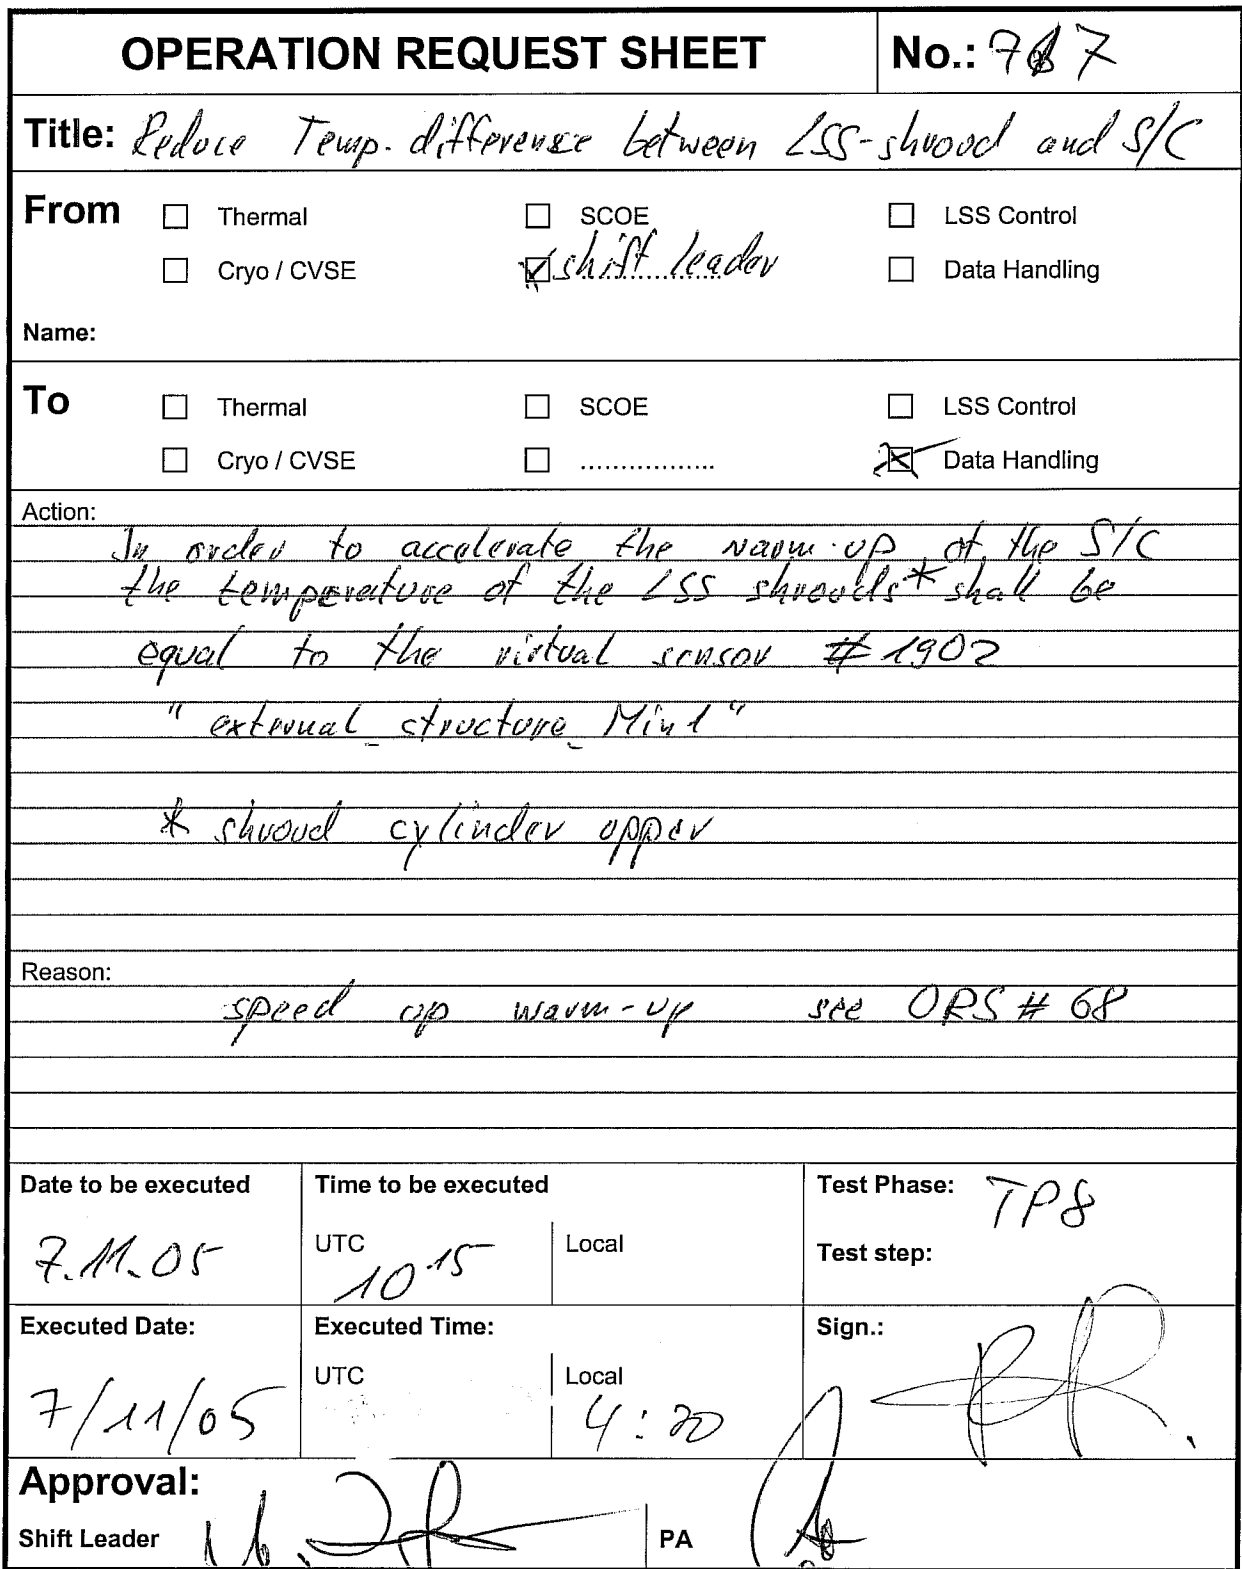 OPERATION REQUEST SHEET No.: 717
Title: Reduce Temp. difference between LSS-shroud and S/C
From Thermal SCOE LSS Control
Cryo / CVSE shift leader Data Handling
Name:
To Thermal SCOE LSS Control
Cryo / CVSE .................. Data Handling
Action:
In order to accelerate the warm-up of the S/C
the temperature of the LSS shrouds* shall be
equal to the virtual sensor # 1902
"external_structure_Min1"
* shroud cylinder upper
Reason:
speed up warm-up see ORS # 68
Date to be executed Time to be executed Test Phase: TP8
7.11.05 UTC 10 15 Local Test step:
Executed Date: Executed Time: Sign.:
7/11/05 UTC Local 4:20
Approval:
Shift Leader PA